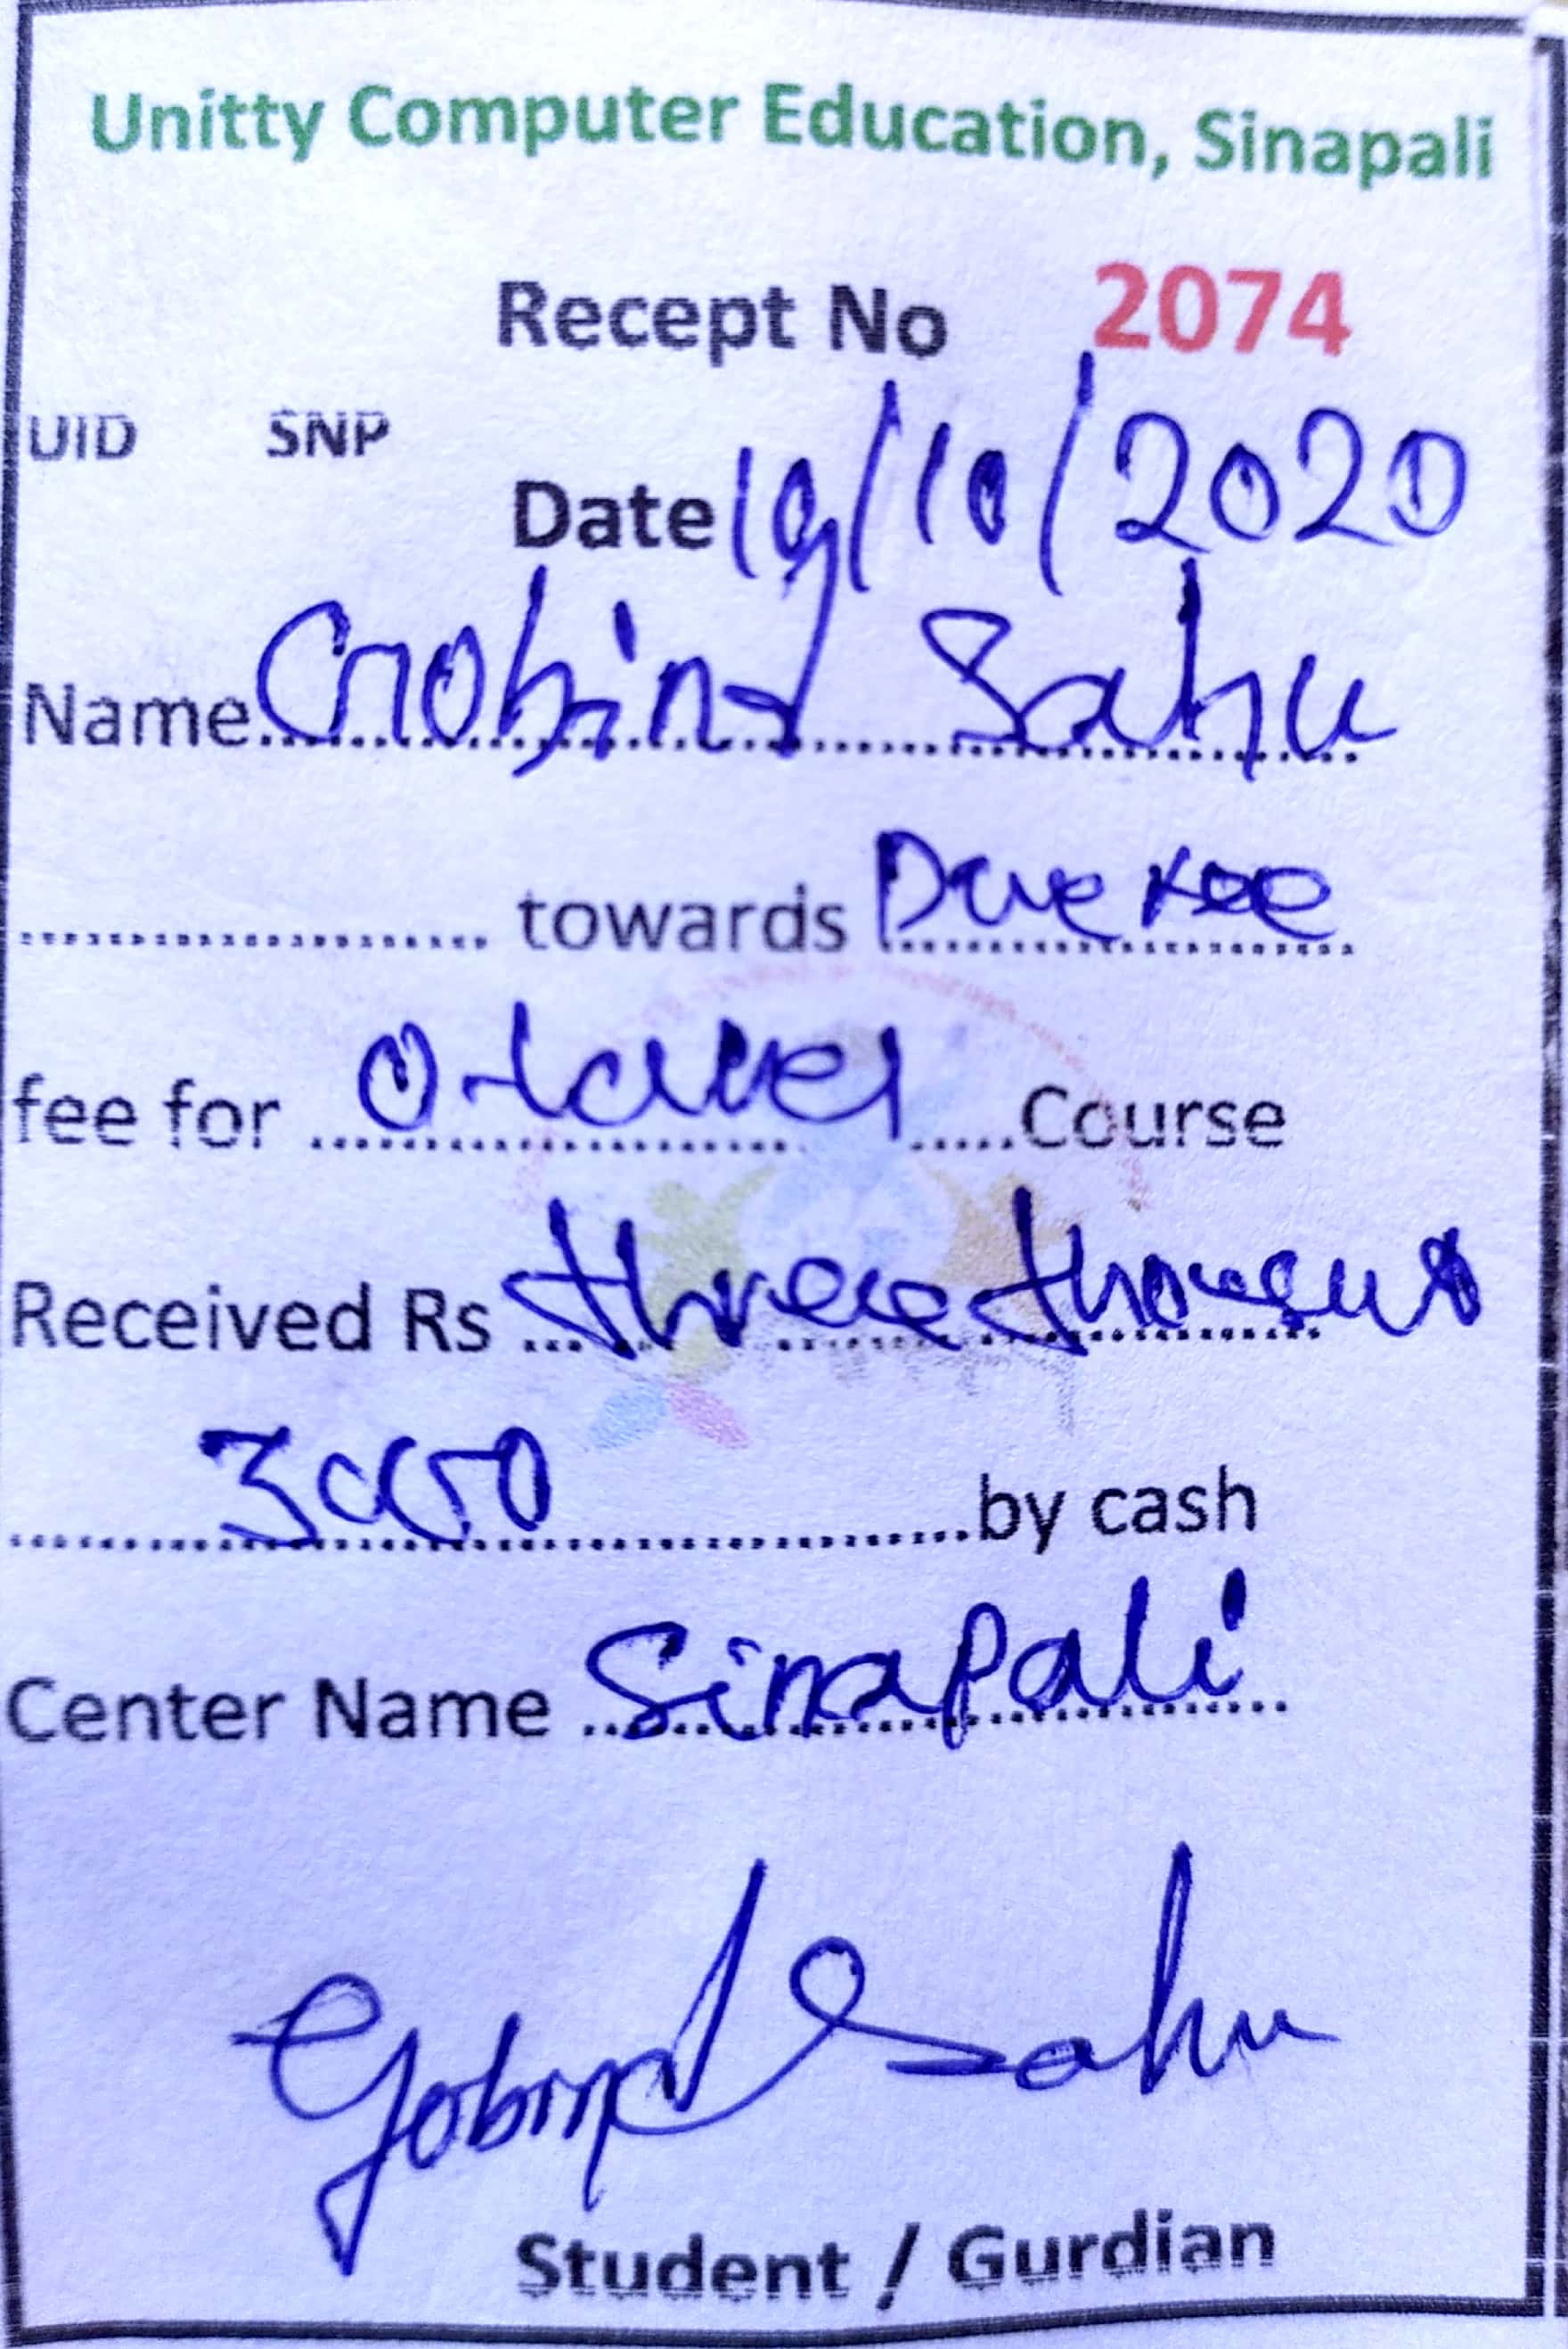 Unitty Computer Education, Sinapali
Recept No 2074
UID SNP
Date 19/10/2020
Name Gobind Sahu
towards Due
fee for O-Level Course
Received Rs three thousand
3000 by cash
Center Name Sinapali
Gobind Sahu
Student / Gurdian